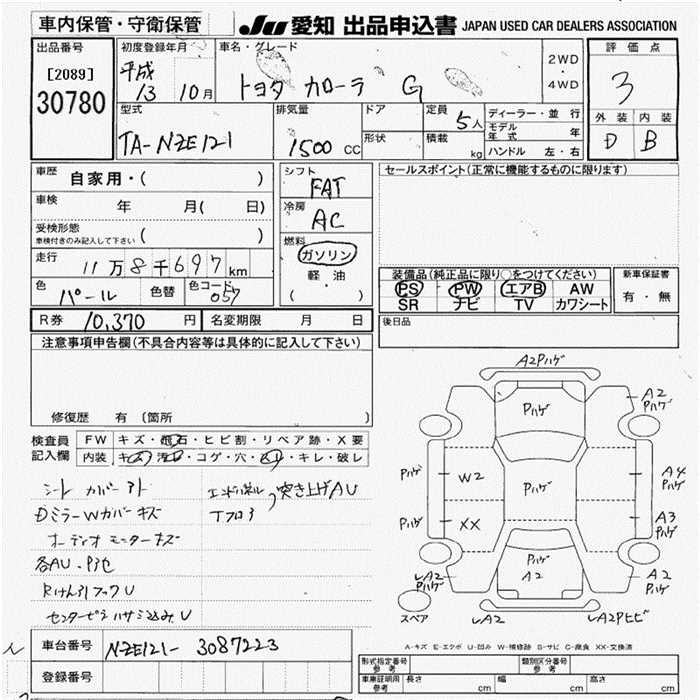 車内保管・守衛保管
JU 愛知 出品申込書 JAPAN USED CAR DEALERS ASSOCIATION
出品番号
[2089]
30780
初度登録年月
平成
13 10月
車名・グレード
トヨタ カローラ G
2WD
・
4WD
評価点
3
外装 内装
D B
型式
TA-NZE121
排気量
1500 CC
ドア
形状
定員
5人
積載
kg
ディーラー・並行
モデル年式 年
ハンドル 左・右
車歴
自家用・( )
車検
年 月( 日)
受検形態
車検付きのみ記入して下さい ( )
走行
11万8千697km
色
パール
色替
色コード
057
シフト
FAT
冷房
AC
燃料
ガソリン
軽・油
( )
セールスポイント(正常に機能するものに限ります)
装備品(純正品に限り○をつけてください)
PS PW エアB AW
SR ナビ TV カワシート
新車保証書
有・無
R券 10,370 円
名変期限 月 日
後日品
注意事項申告欄(不具合内容等は具体的に記入して下さい)
修復歴 有 〔箇所
検査員
記入欄
FW キズ・飛石・ヒビ割・リペア跡・X要
内装 キズ・汚レ・コゲ・穴・スレ・キレ・破レ
シートカバー外ト
DミラーWカバーキズ
オーディオモニターキズ
各AU.P3色
センターピラハサミ込みU
エンドパネル突き上げAU
Tフロ3
A2Pハゲ
Pハゲ
A2
Pハゲ
Pハゲ
W2
Pハゲ
A4
Pハゲ
Pハゲ
XX
A3
Pハゲ
Pハゲ
A2
A2
Pハゲ
A2
Pハゲ
A2
A2Pヒビ
スペア
A-キズ E-エクボ U-凹み W-補修跡 S-サビ C-腐食 XX-交換済
車台番号 NZE121-3087223
登録番号
形式指定番号
参考
類別区分番号
参考
車庫証明用
参考
長さ cm
幅 cm
高さ cm